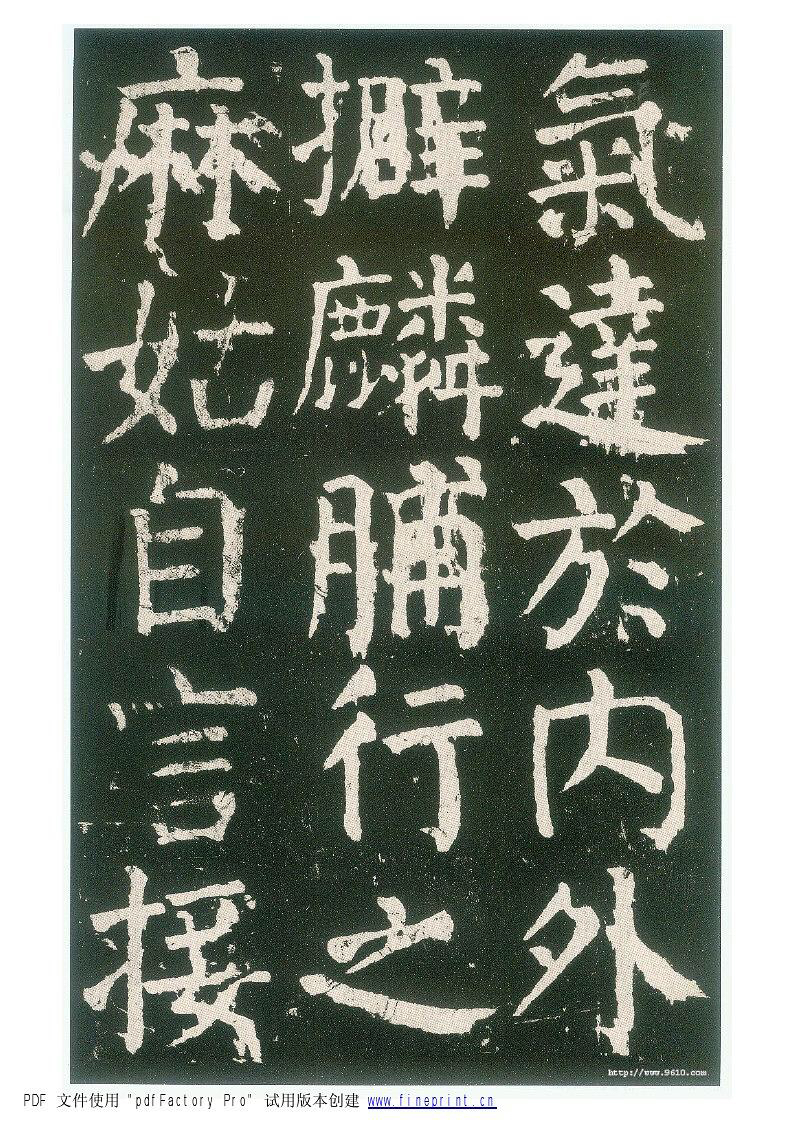 氣達於内外
擗麟脯行之
麻姑自言接
http://www.9610.com
PDF 文件使用 "pdfFactory Pro" 试用版本创建 www.fineprint.cn